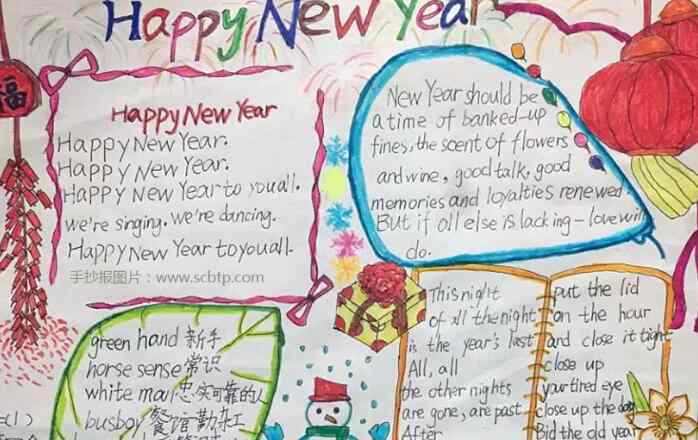 Happy New Year
福
Happy New Year
Happy New Year.
Happy New Year.
Happy New Year to you all.
we're singing. we're dancing.
Happy New Year to you all.
手抄报图片：www.scbtp.com
New Year should be
a time of banked-up
fines, the scent of flowers
and wine, good talk, good
memories and loyalties renewed.
But if all else is lacking – love will
do.
green hand 新手
horse sense 常识
white man 忠实可靠的人
busboy 餐馆勤杂工
This night
of all the night
is the year's last
All, all
the other nights
are gone, are past
After
put the lid
on the hour
and close it tight
close up
your tired eye
close up the day
Bid the old year